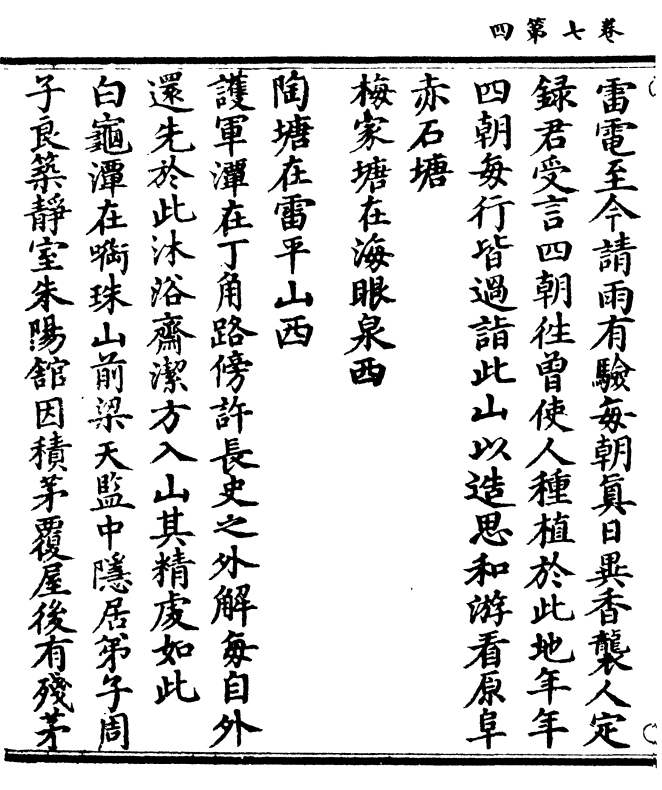 卷七第四
雷電至今請雨有驗每朝眞日異香襲人定
録君受言四朝徃曾使人種植於此地年年
四朝每行皆過詣此山以造思和游看原阜
赤石塘
梅家塘在海眼泉西
陶塘在雷平山西
護軍潭在丁角路傍許長史之外解每自外
還先於此沐浴齋潔方入山其精虔如此
白龜潭在㗸珠山前梁天監中隱居弟子周
子良築靜室朱陽館因積茅覆屋後有殘茅